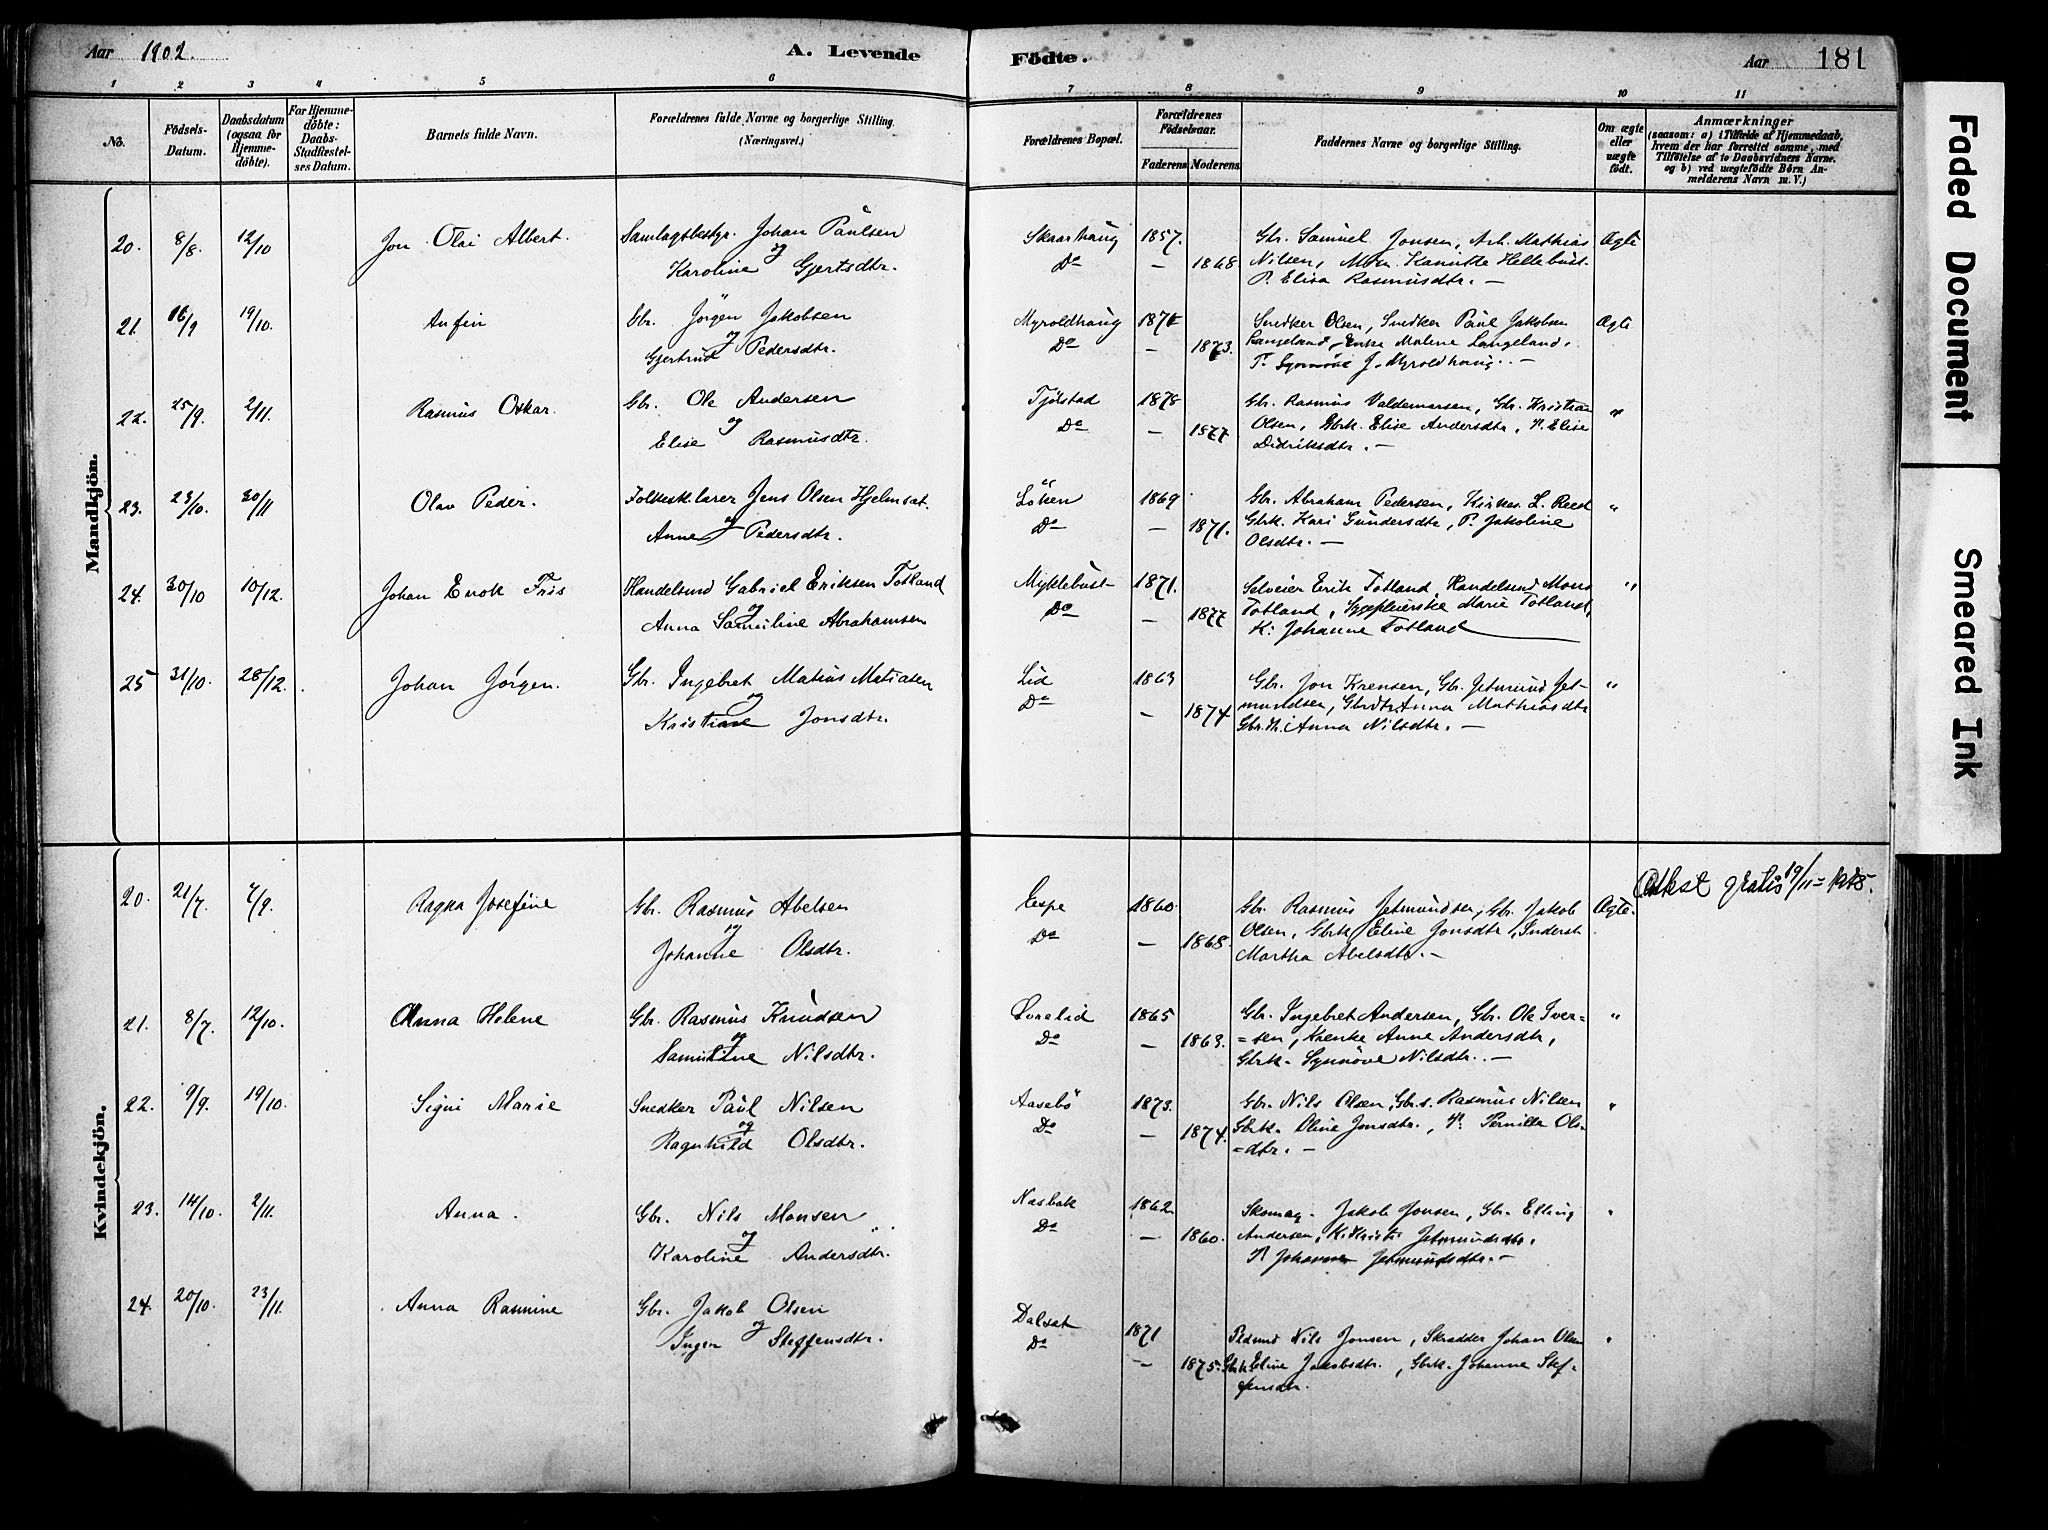 Aar 1902.
A. Levende
Födte.
Aar
181
1 2 3 4 5 6 7 8 9 10 11
No.
Födsels-Datum.
Daabsdatum (ogsaa for Hjemme-döbte).
For Hjemme-döbte: Daabs-Stadfæstel-ses Datum.
Barnets fulde Navn.
Forældrenes fulde Navne og borgerlige Stilling. (Næringsvei.)
Forældrenes Bopæl.
Forældrenes Födselsaar.
Faderens. Moderens.
Faddernes Navne og borgerlige Stilling.
Om ægte eller uægte födt.
Anmærkninger
(saasom: a) i Tilfælde af Hjemmedaab, hvem der har forrettet samme, med Tilföielse af to Daabsvidners Navne. og b) ved uægtefödte Börn An-melderens Navn m. V.)
Mandkjön.
20. 8/8. 12/10 Jon Olai Albert. Samlagsbestyr. Johan Paulsen Skaarhaug 1857. Gbr. Samuel Jonsen, Arb. Mathias Ægte
og
Karoline Gjertsdtr. Do — 1868. Nilsen, Hellebust
P. Elisa Rasmusdtr. —
21. 16/9 19/10. Anfin Gbr. Jörgen Jakobsen Myroldhaug Snedker Olsen, Snedker Paul Jakobsen Ægte
og
Gjertrud Pedersdtr. Do — 1873. Langeland, Enke Malene Langeland.
P. Synnöve J. Myroldhaug. —
22. 25/9. 2/11. Rasmus Oskar. Gbr. Ole Andersen Tjölstad 1878 Gbr. Rasmus Valdemarsen, Gbr. Kristian "
og
Elise Rasmusdtr. Do — 1877 Olsen, Gbrk. Elise Andersdtr, P. Elise
Didriksdtr. —
23. 23/10. 30/11 Olav Peder. Folkesk.lærer Jens Olsen Hjelmsæt. Löken 1869 Gbr. Abraham Pedersen, Kirkes. L. Reed "
og
Anne Pedersdtr. Do — 1871. Gbrk. Kari Gundersdtr, P. Jakoline
Olsdtr. —
24. 30/10 10/12. Johan Enok Friis Handelsmd Gabriel Eriksen Totland Myklebust 1871. Selveier Erik Totland, Handelsmd Mons "
og
Anna Samuline Abrahamsen Do — 1877 Totland, Marie Totland,
K. Johanne Totland
25 31/10. 28/12. Johan Jørgen. Gbr. Ingebret Matius Matiasen Lid 1863 Gbr. Jon Krensen, Gbr. Jetmund Jet- "
og
Kristiane Jonsdtr. Do — 1874. mundsen, Anna Mathiasdtr
Anna Nilsdtr. —
Kvindekjön.
20. 21/7. 7/9. Ragna Josefine Gbr. Rasmus Abelsen Espe 1860. Gbr. Rasmus Jetmundsen, Gbr. Jakob Ægte. Attest gratis 19/11
og
Johanne Olsdtr. Do — 1868. Olsen, Gbrk. Eline Jonsdtr, Inderst
Martha Abelsdtr. —
21. 8/7. 12/10. Anna Helene Gbr. Rasmus Knudsen Övrelid 1865 Gbr. Ingebret Andersen, Gbr. Ole Iver= "
og
Samuline Nilsdtr. Do — 1863. =sen, Anne Andersdtr,
Gbrk. Synnöve Nilsdtr. —
22. 9/9. 19/10. Signi Marie Snedker Paul Nilsen Aasebö 1873. Gbr. Nils Olsen, Gbr.s. Rasmus Nilsen "
og
Ragnhild Olsdtr. Do — 1874. Gbrk. Oline Jonsdtr., P. Pernille Ols=
=dtr. —
23. 14/10. 2/11. Anna. Gbr. Nils Monsen Næsbak 1862. Skomag. Jakob Jonsen, Gbr. Elling "
og
Karoline Andersdtr. Do — 1860. Andersen, Jetmundsdtr.
P. Johanne Jetmundsdtr. —
24. 20/10. 23/11. Anna Rasmine Gbr. Jakob Olsen Dalsæt 1871 Nils Jonsen, Skrædder Johan Olsen "
og
Inger Steffensdtr. Do — 1875. Gbrk. Eline Jakobsdtr., Gbrk. Johanne Stef-
fensdtr.
Faded Document
Smeared Ink